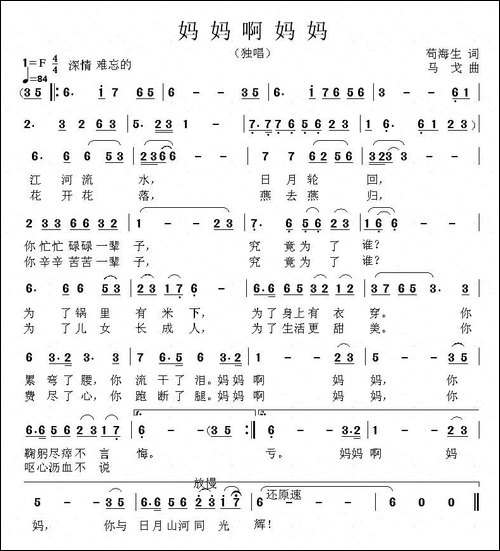 妈妈啊妈妈
(独唱)
1=F 4/4 ♩=84 深情 难忘的
苟海生 词
马 戈 曲
(3 5 ‖: 6. i 7 6 5 | 6 - - i | 5. i 7 6 5 6 | 3 - - 6 1 |
2. 3 2 6 3 | 5. 2 3 - - | 7. 7 7 6 5 6 5 | 1 6. 6 1 2 3) |
6. 6 5 5 3 | 2 3 6 6 - - | 7. 6 5 3 5 | 3 2 3 - - |
江 河 流 水, 日 月 轮 回,
花 开 花 落, 燕 去 燕 归,
2 3 3 6 6 3 2 | 1 - - 2 3 | 7. 6 5 6 2 | 1 6 6 - - |
你 忙忙 碌碌 一辈 子, 究 竟 为 了 谁?
你 辛辛 苦苦 一辈 子, 究 竟 为 了 谁?
6. 6 6 5 5 3 | 2 3 2 3 1 7 6 | 2. 2 2 3 5 6 1 2 | 3 7 6 5 3. 3 |
为 了 锅 里 有 米 下, 为 了 身 上 有 衣 穿。 你
为 了 儿 女 长 成 人, 为 了 生活 更 甜 美。 你
6 3. 2 3. 3 | 7 6 6 5 6 3. 2 | 1 - - 2 3 | 5 6 6 - 5 |
累 弯 了 腰, 你 流 干 了 泪。 妈妈 啊 妈 妈, 你
费 尽 了 心, 你 跑 断 了 腿。 妈妈 啊 妈 妈, 你
6. 6 5 6 2 2 3 1 7 | 6 - - (3 5) :‖ 6 - 3. 2 | 1 - - 2 3 |
鞠躬 尽瘁 不 言 悔。 亏。 妈妈 啊 妈
呕心 沥血 不 说
放慢
还原速
5 - - 3 5 | 6. 6 5 6 2 3 1 7 | 6 - - - | 6 0 0 ‖
妈, 你 与 日月 山河 同 光 辉!